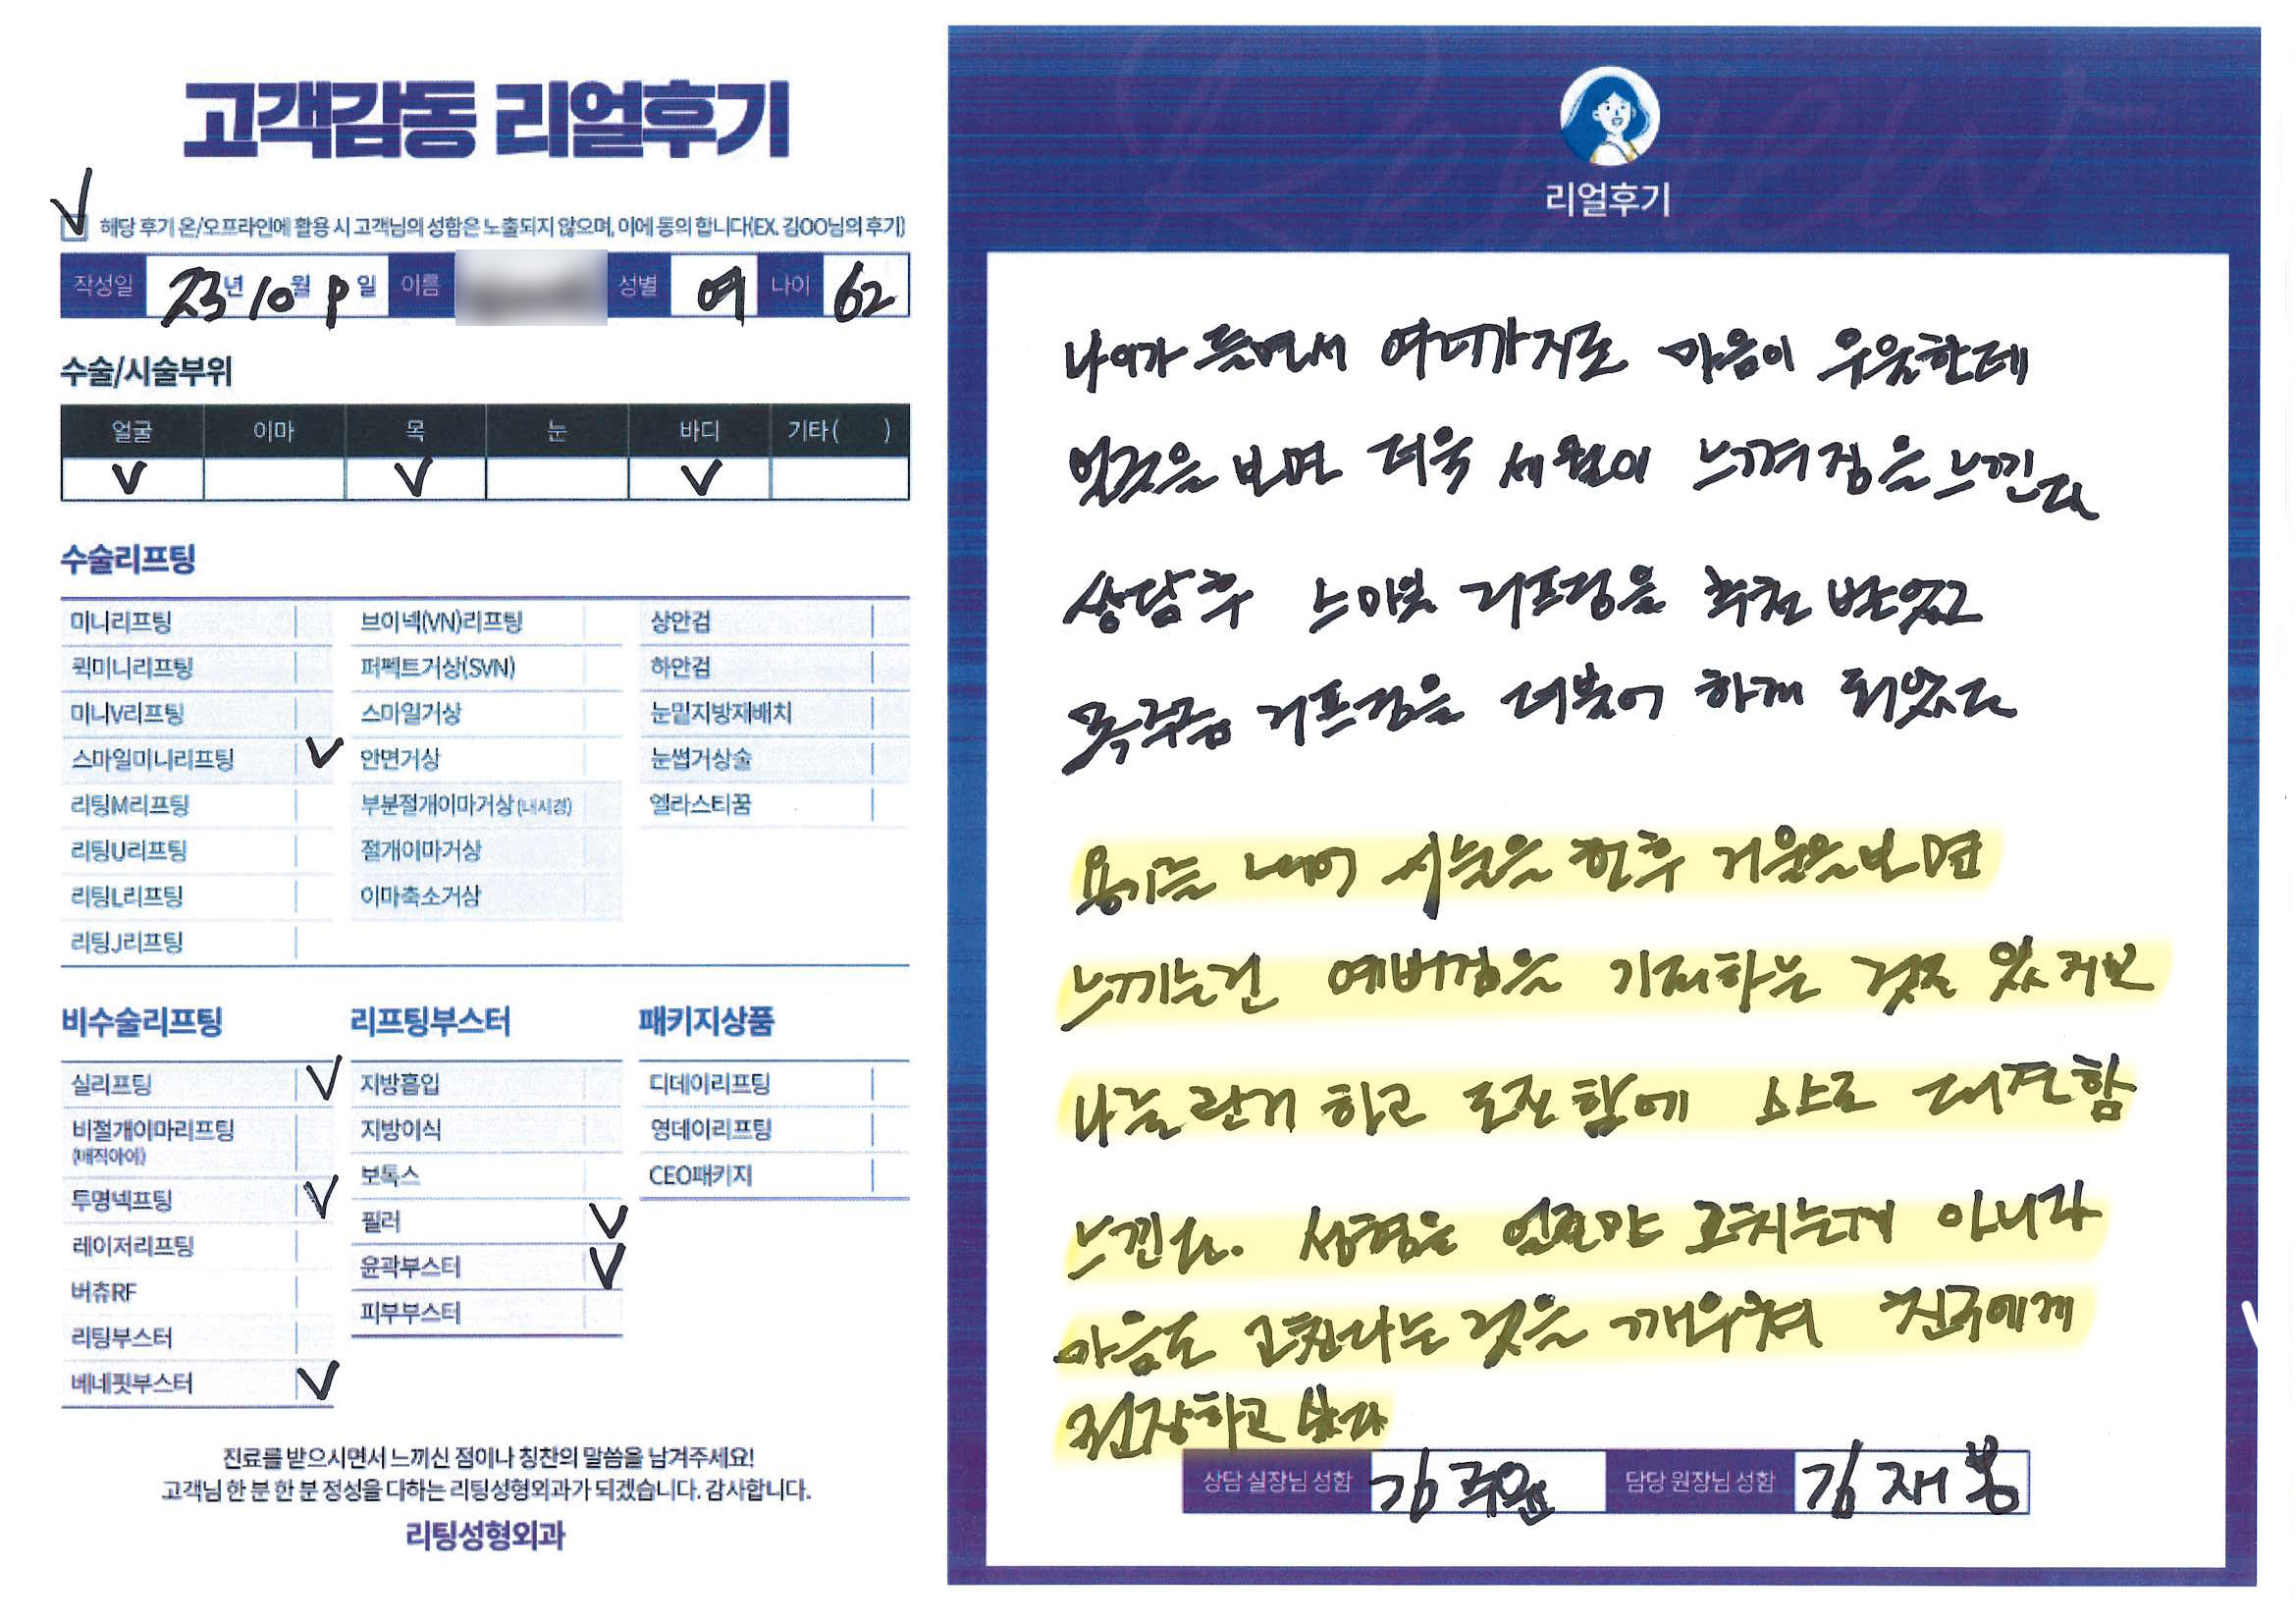 고객감동 리얼후기
해당 후기 온/오프라인에 활용 시 고객님의 성함은 노출되지 않으며, 이에 동의 합니다(EX. 김OO님의 후기)
작성일 23년 10월 9일 이름 성별 여 나이 62
수술/시술부위
얼굴 이마 목 눈 바디 기타( )
수술리프팅
미니리프팅 브이넥(VN)리프팅 상안검
퀵미니리프팅 퍼펙트거상(SVN) 하안검
미니V리프팅 스마일거상 눈밑지방재배치
스마일미니리프팅 안면거상 눈썹거상술
리팅M리프팅 부분절개이마거상(내시경) 엘라스티꿈
리팅U리프팅 절개이마거상
리팅L리프팅 이마축소거상
리팅J리프팅
비수술리프팅 리프팅부스터 패키지상품
실리프팅 지방흡입 디데이리프팅
비절개이마리프팅 지방이식 영데이리프팅
(매직아이)
보톡스 CEO패키지
투명넥프팅 필러
레이저리프팅 윤곽부스터
버츄RF 피부부스터
리팅부스터
베네핏부스터
진료를 받으시면서 느끼신 점이나 칭찬의 말씀을 남겨주세요!
고객님 한 분 한 분 정성을 다하는 리팅성형외과가 되겠습니다. 감사합니다.
리팅성형외과
Review
리얼후기
나이가 들면서 여러가지로 마음이 우울한데
보면 더욱 세월이 느껴짐을 느낀다
상담후 스마일 리프팅을 추천 받았고
목주름 리프팅을 더불어 하게 되었다
용기를 내어 시술을 한후 거울을 보면
느끼는건 예뻐짐을 기대하는 것도 있지만
나를 하고 도전함에 스스로 대견함
느낀다. 성형은 얼굴만 고치는게 아니라
마음도 고친다는 것을 깨우쳐 친구에게
권장하고 싶다
상담 실장님 성함 김주윤 담당 원장님 성함 김재봉